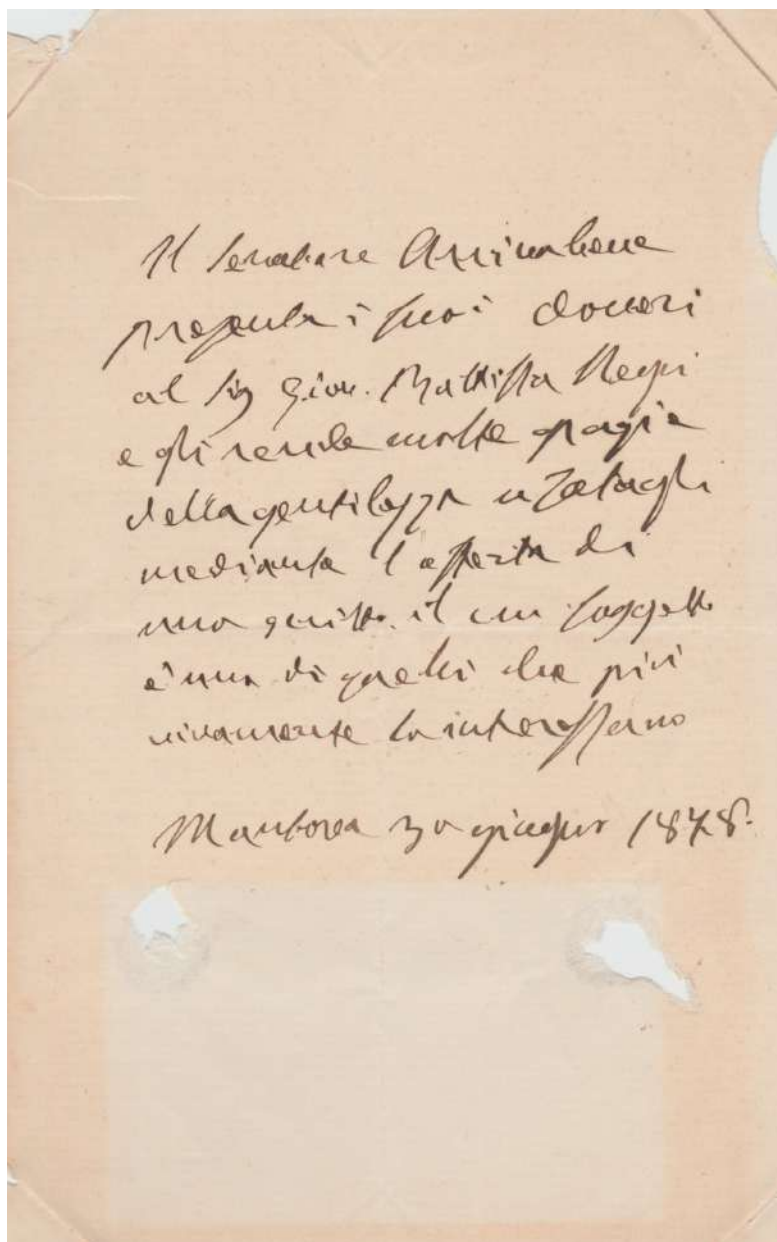 Il Senatore Arrivabene
presenta i suoi doveri
al Sig Giov. Battista Negri
e gli rende molte grazie
della gentilezza usatagli
mediante l'offerta di
uno scritto il cui soggetto
è uno di quelli che più
vivamente lo interessano
Mantova 30 giugno 1878.